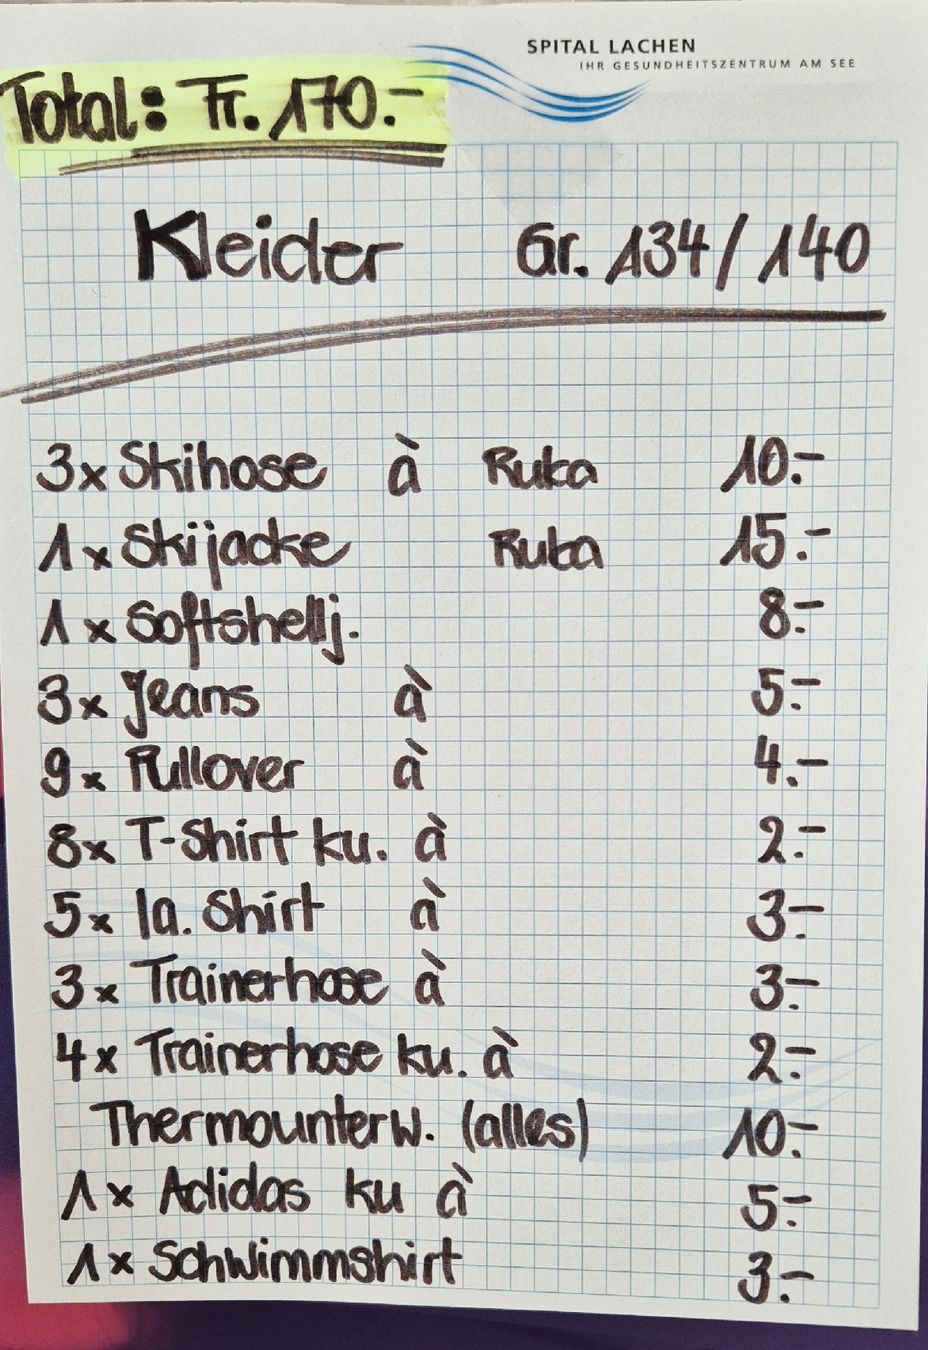 SPITAL LACHEN
IHR GESUNDHEITSZENTRUM AM SEE
Total: Fr. 170.-
Kleider Gr. 134/140
3x Skihose à Ruka 10.-
1x Skijacke Ruka 15.-
1x Softshellj. 8.-
3x Jeans à 5.-
9x Pullover à 4.-
8x T-Shirt ku. à 2.-
5x la. Shirt à 3.-
3x Trainerhose à 3.-
4x Trainerhose ku. à 2.-
Thermounterw. (alles) 10.-
1x Adidas ku à 5.-
1x Schwimmshirt 3.-